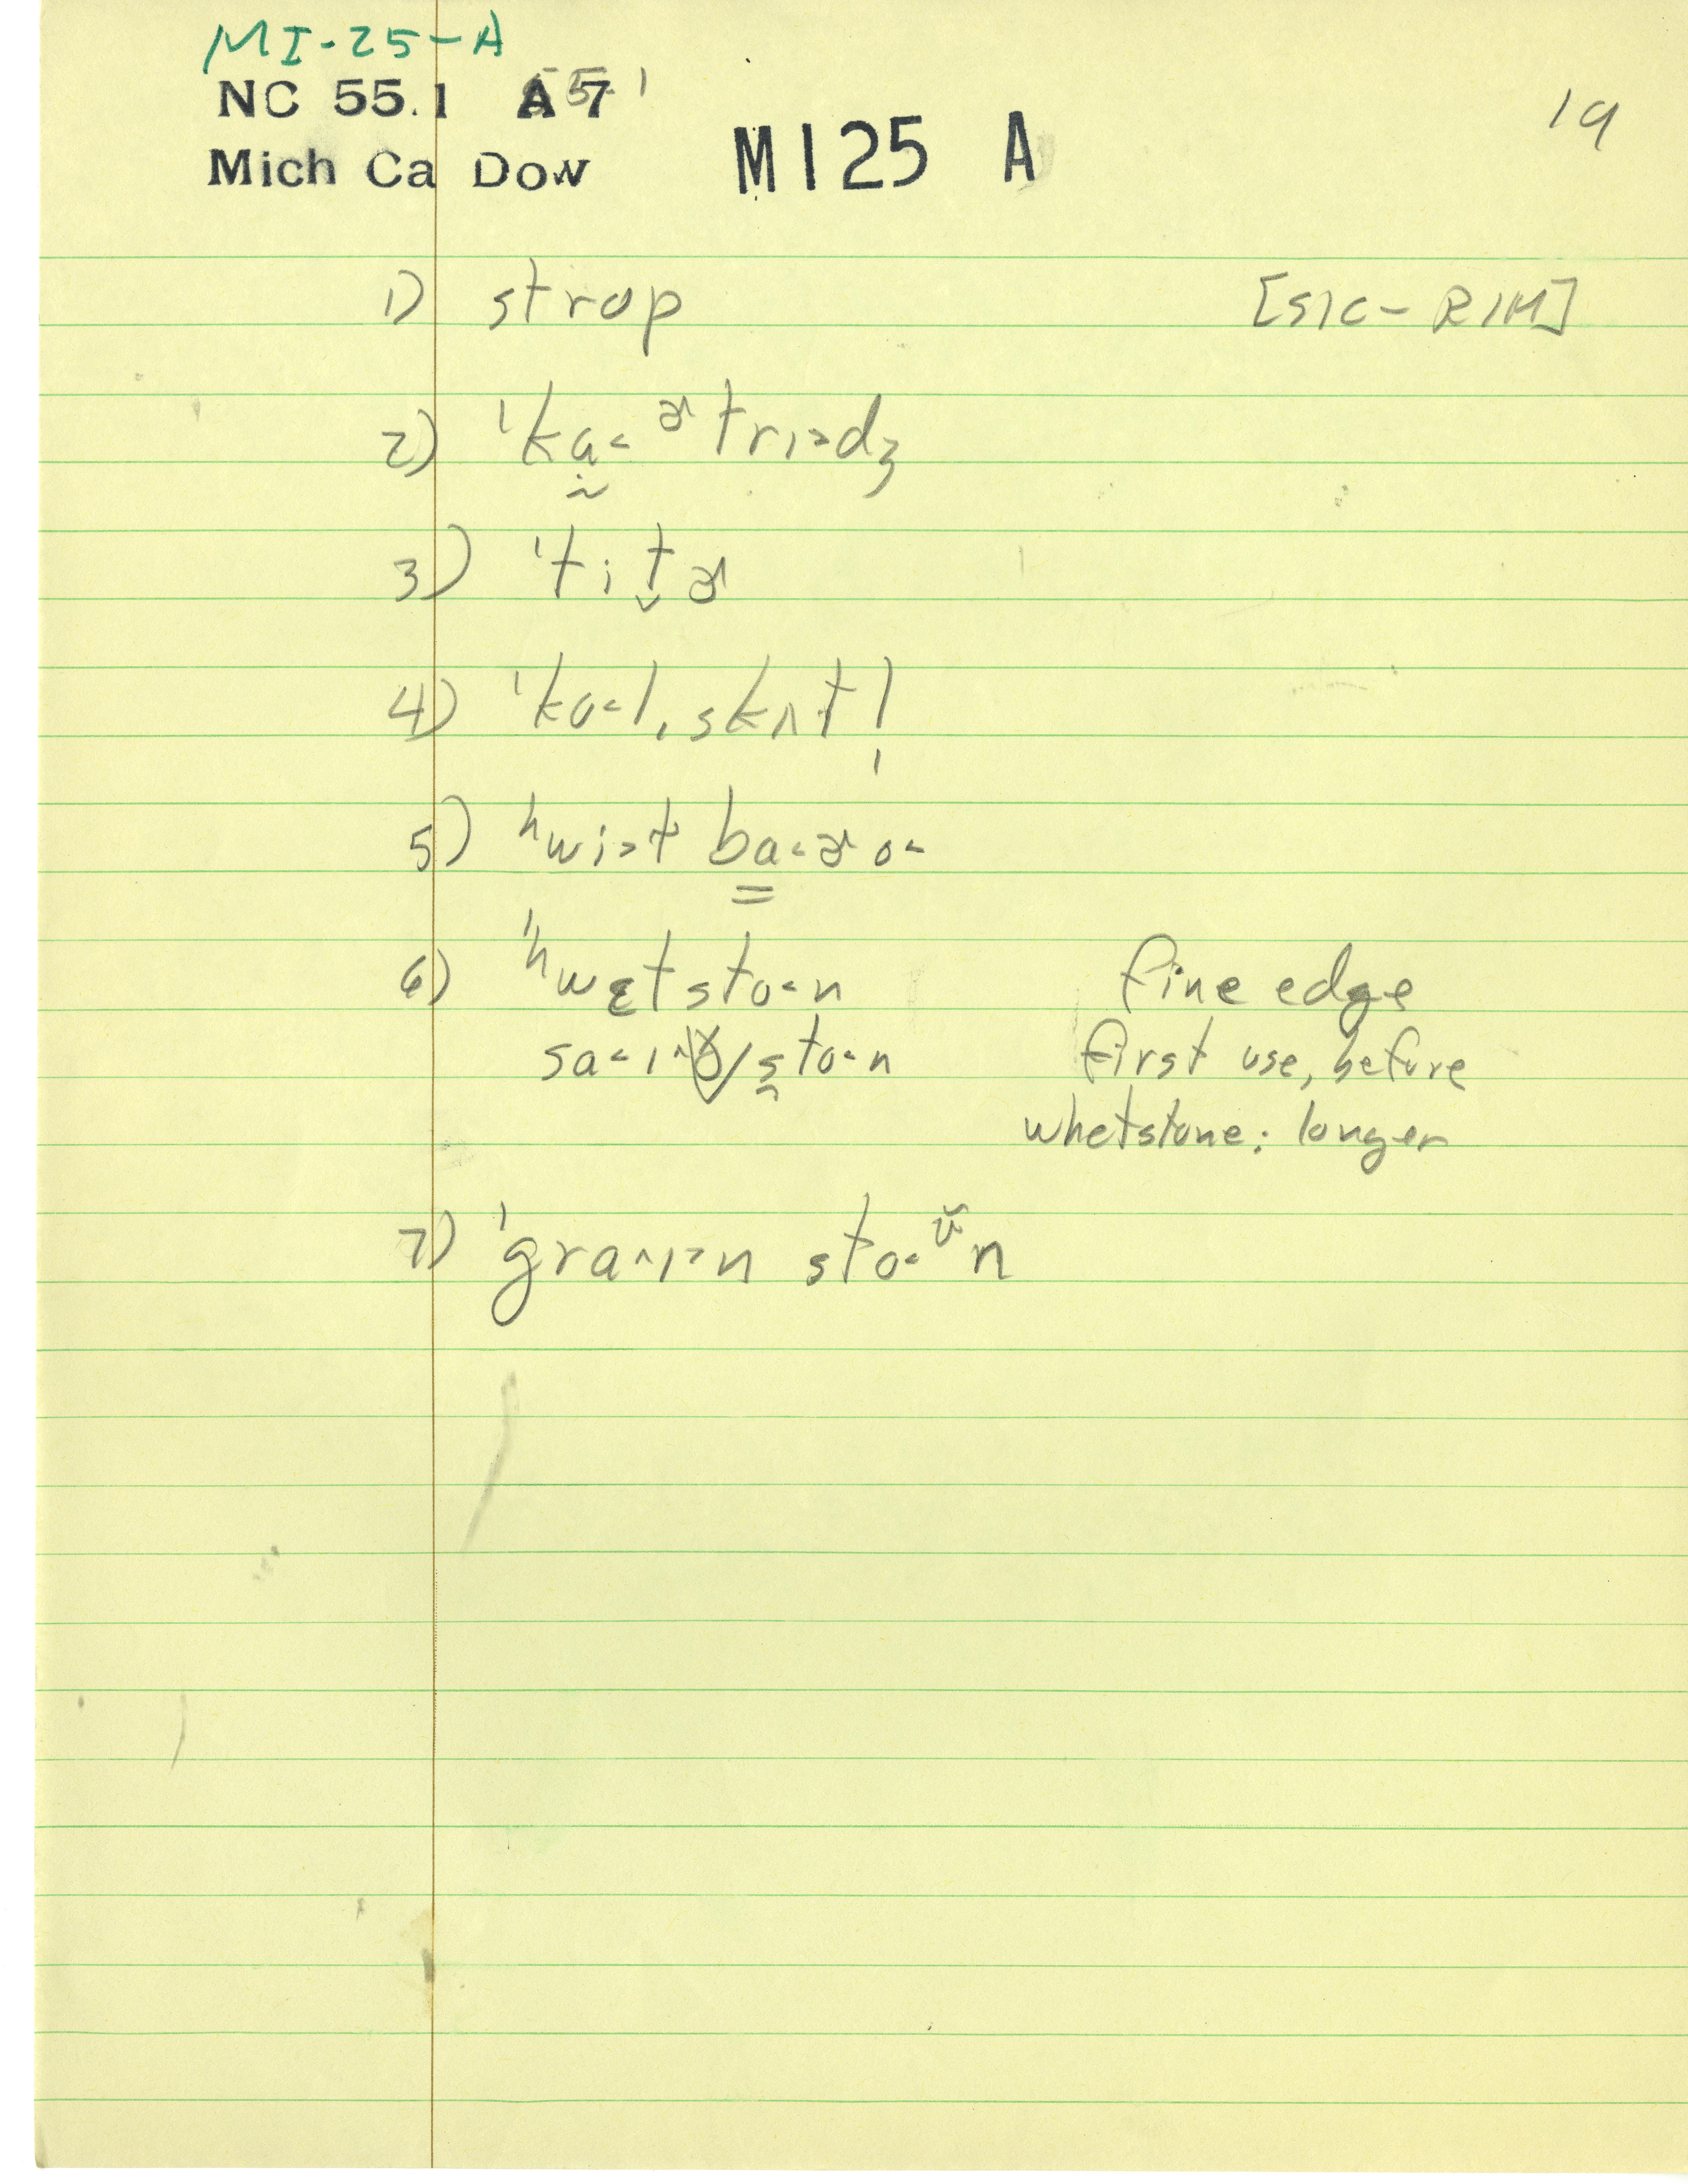 MI-25-A
NC 55.1 A 7
Mich Ca Dow M I 25 A
19
1) strop [SIC - RIM]
2) ˈka̰˂ ɚtrɪ˃dʒ
3) ˈtit̬ɚ
4) ˈko˂lˌskʌtl̩
5) ʰwi˃t ba̳˂ɚo˂
6) ˈʰwɛtsto˂n fine edge
sto˂n first use, before
whetstone; longer
7) ˈgra˄ɪ˃n sto˂ʊ̆n